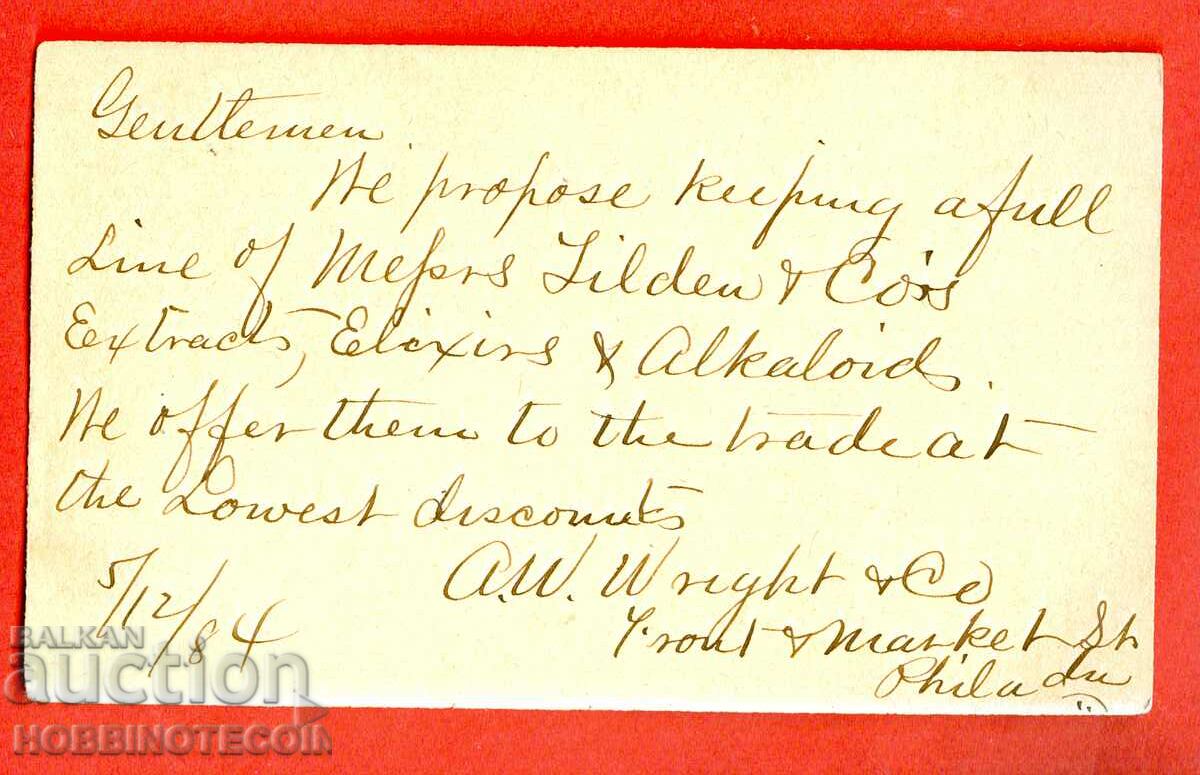 Gentlemen
We propose keeping a full
Line of Messrs Tilden & Co's
Extracts, Elixirs & Alkaloids.
We offer them to the trade at
the Lowest discounts
5/12/84
A.W. Wright & Co
Front & Market St
Philada
BALKAN
auction
HOBBINOTECOIN